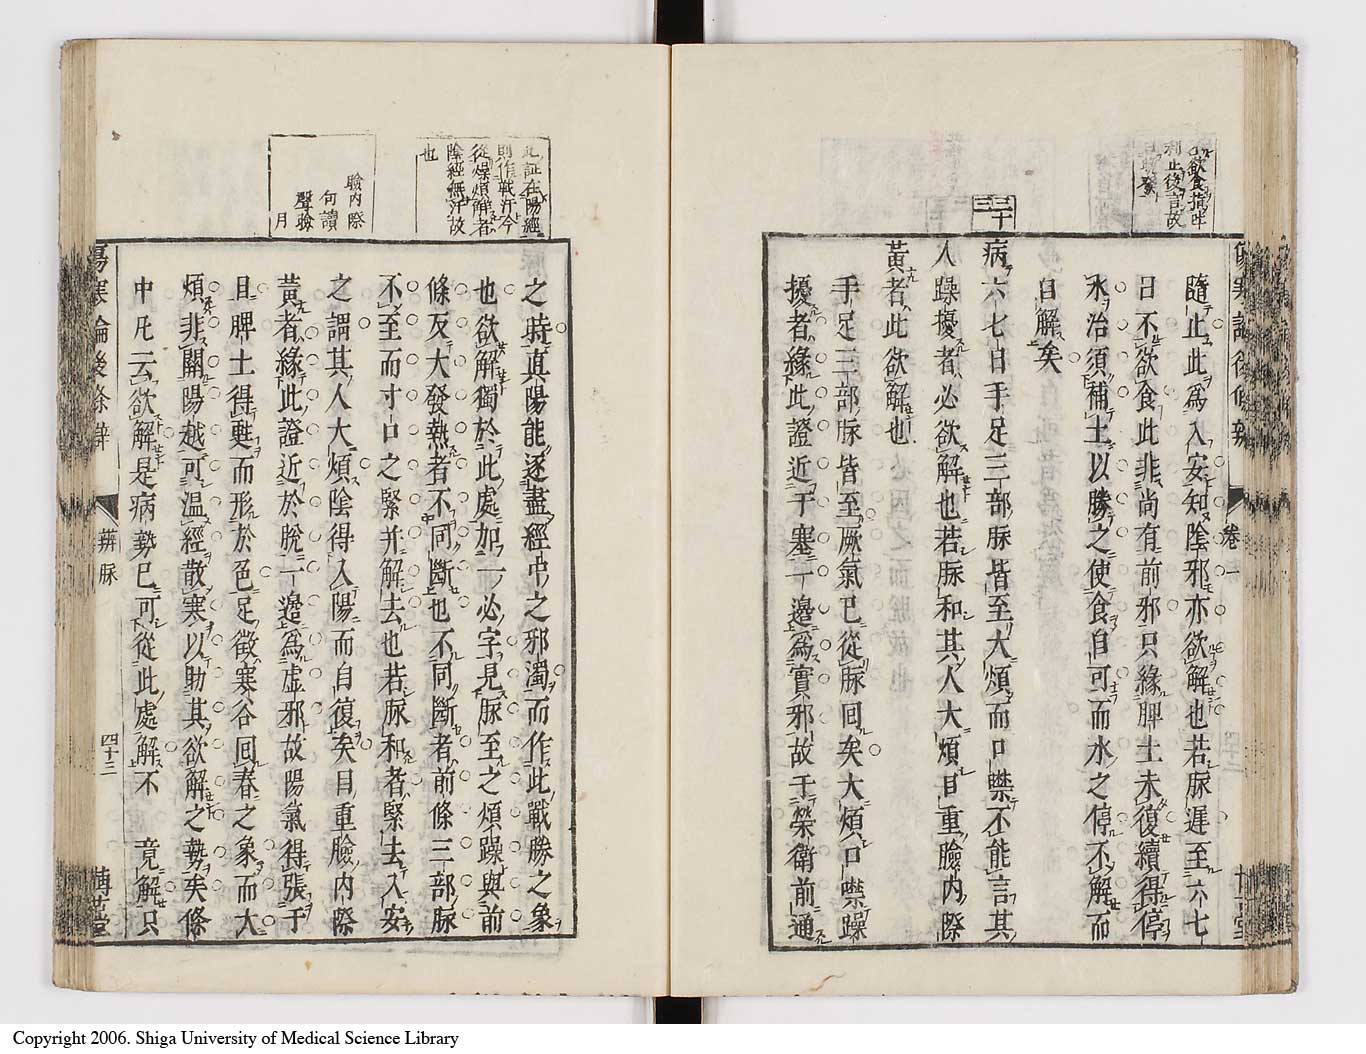 飲食
利止後言故
傷寒論後條辨
卷一
隨止此爲人安知陰邪亦欲解也若脈遲至六七
日不欲食此非尚有前邪只緣脾土未復續得停
水治須補土以勝之使食自可而水之停不解而
自解矣
三十三
病六七日手足三部脈皆至大煩而口噤不能言其
人躁擾者必欲解也若脈和其人大煩目重臉內際
黃者此欲解也
手足三部脈皆至厥氣已從脈回矣大煩口噤躁
擾者緣此證近于塞一邊爲實邪故于榮衛前通
此証在陽經
則作戰汗今
從煩解者
陰經無汗故
也
臉內際
句讀
聲臉
月
之時真陽能逐盡經中之邪濁而作此戰勝之象
也欲解獨於此處加一必字見脈至之煩躁與前
條反大發熱者不同斷也不同斷者前條三部脈
不至而寸口之緊并解去也若脈和者緊去入安
之謂其人大煩陰得入陽而自復矣目重臉內際
黃者緣此證近於脫一邊爲虛邪故陽氣得張于
且脾土得甦而形於色足徵寒谷回春之象而大
煩非關陽越可溫經散寒以助其欲解之勢矣條
中凡云欲解是病勢已可從此處解不竟解只
傷寒論後條辨
辨脈
四十三
博古堂
Copyright 2006. Shiga University of Medical Science Library